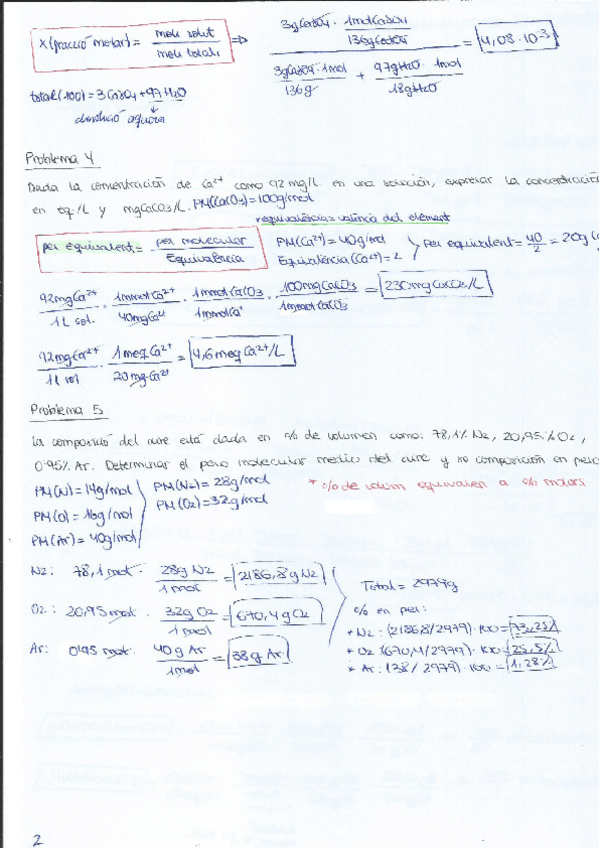 X (fracció molar) = mols solut / mols totals => (3g CaSO4 · 1mol CaSO4 / 136g CaSO4) / (3g CaSO4 · 1mol / 136g + 97g H2O · 1mol / 18g H2O) = 4,08·10⁻³
total (100) = 3 CaSO4 + 97 H2O
dissolució aquosa
Problema 4
Dada la concentración de Ca²⁺ como 92 mg/L en una solución, expresar la concentración
en eq/L y mgCaCO3/L. PM(CaCO3) = 100g/mol
equivalència = valència del element
pes equivalent = pes molecular / Equivalència
PM(Ca²⁺) = 40g/mol
Equivalència (Ca²⁺) = 2
Pes equivalent = 40/2 = 20g
92mg Ca²⁺ / 1L sol. · 1mmol Ca²⁺ / 40mg Ca²⁺ · 1mmol CaCO3 / 1mmol Ca² · 100mg CaCO3 / 1mmol CaCO3 = 230 mg CaCO3/L
92mg Ca²⁺ / 1L sol · 1meq Ca²⁺ / 20mg Ca²⁺ = 4,6 meq Ca²⁺/L
Problema 5
La composició del aire está dada en % de volumen como: 78,1% N2, 20,95% O2,
0'95% Ar. Determinar el peso molecular medio del aire y su composición en peso
PM(N) = 14g/mol
PM(N2) = 28g/mol
* % de volum equivalen a % molars
PM(O) = 16g/mol
PM(O2) = 32g/mol
PM(Ar) = 40g/mol
N2: 78,1 mol · 28g N2 / 1mol = 2186,8g N2
Total = 2979g
O2: 20,95 mol · 32g O2 / 1mol = 670,4g O2
% en pes:
* N2: (2186,8/2979)·100 = 73,25%
* O2: (670,4/2979)·100 = 25,5%
Ar: 0'95 mol · 40g Ar / 1mol = 38g Ar
* Ar: (38/2979)·100 = 1,28%
2